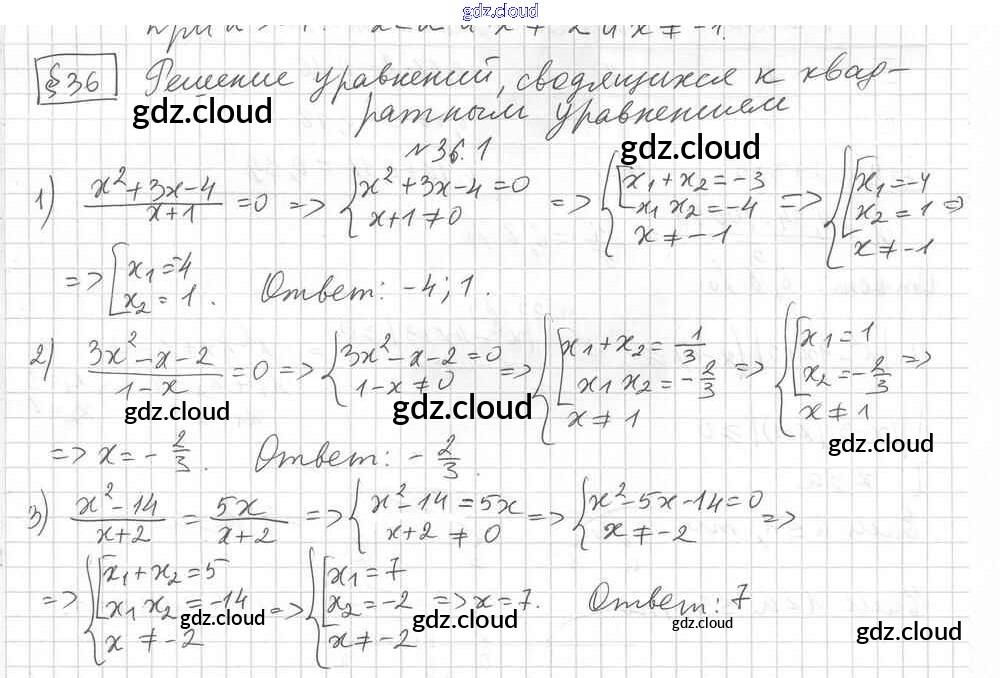 gdz.cloud
при x 2 и x ≠ -1.
§36 Решение уравнений, сводящихся к квад-
ратным уравнениям
gdz.cloud gdz.cloud
№36.1
1) (x²+3x-4)/(x+1) = 0 => {x²+3x-4=0; x+1≠0 => {[x₁+x₂=-3; x₁x₂=-4; x≠-1 => {[x₁=-4; x₂=1; x≠-1 =>
=> [x₁=-4; x₂=1. Ответ: -4; 1.
2) (3x²-x-2)/(1-x) = 0 => {3x²-x-2=0; 1-x≠0 => {[x₁+x₂=1/3; x₁x₂=-2/3; x≠1 => {[x₁=1; x₂=-2/3; x≠1 =>
gdz.cloud gdz.cloud gdz.cloud
=> x=-2/3. Ответ: -2/3.
3) (x²-14)/(x+2) = 5x/(x+2) => {x²-14=5x; x+2≠0 => {x²-5x-14=0; x≠-2 =>
=> {[x₁+x₂=5; x₁x₂=-14; x≠-2 => {[x₁=7; x₂=-2; x≠-2 => x=7. Ответ: 7
gdz.cloud gdz.cloud gdz.cloud gdz.cloud